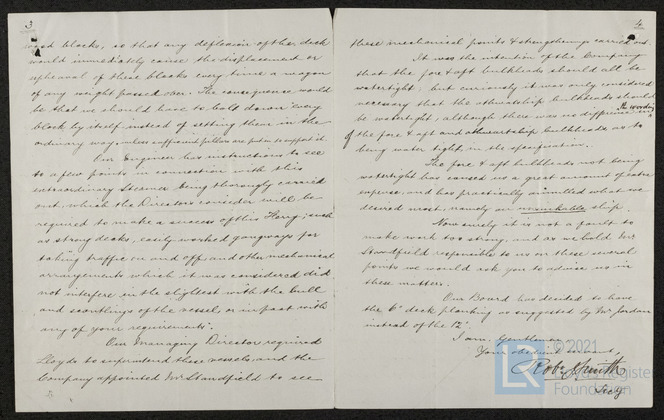 3
wood blocks, so that any deflexion of the deck
would immediately cause the displacement or
upheaval of these blocks every time a wagon
of any weight passed over. The consequence would
be that we should have to bolt down every
block by itself instead of setting them in the
ordinary way, unless sufficient pillars are put in to support it.
Our Engineer has instructions to see
to a few points in connection with this
extraordinary Steamer being thoroughly carried
out, which the Directors consider will be
required to make a success of this Ferry; such
as strong decks, easily worked gangways for
taking traffic on and off, and other mechanical
arrangements which it was considered did
not interfere in the slightest with the hull
and scantlings of the vessel, or in fact with
any of your requirements.
Our Managing Director required
Lloyds to superintend these vessels and the
Company appointed Mr Standfield to see
4
these mechanical points & strengthenings carried out.
It was the intention of the Company
that the fore & aft bulkheads should all be
watertight; but curiously it was only considered
necessary that the athwartship bulkheads should
be watertight, although there was no difference in the wording
of the fore & aft and athwartship bulkheads as to
being water tight, in the specification.
The fore & aft bulkheads not being
watertight has caused us a great amount of extra
expense, and has practically annulled what we
desired most, namely an unsinkable ship.
Now surely it is not a fault to
make work too strong, and as we hold Mr
Standfield responsible to us on these several
points we would ask you to advise us in
these matters.
Our Board has decided to have
the 6" deck planking as suggested by Mr Jordan
instead of the 12".
I am, Gentlemen,
Your obedient servant,
Robt Smith
Secy
LR
© 2021
Lloyd's Register
Foundation